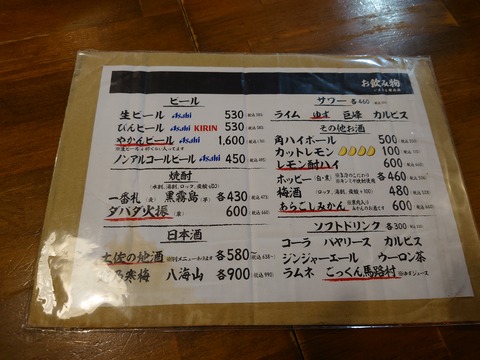 お飲み物
ビール
生ビール Asahi 530
びんビール Asahi KIRIN 530
やかんビール Asahi 1,600
ノンアルコールビール Asahi 450
焼酎
一番札 黒霧島 各430
ダバダ火振 600
日本酒
土佐の地酒 各580
寒梅 八海山 各900
サワー 各460
ライム ゆず 巨峰 カルピス
その他お酒
角ハイボール 500
カットレモン 100
レモン酎ハイ 600
ホッピー 各460
梅酒 480
あらごしみかん 600
ソフトドリンク 各300
コーラ バヤリース カルピス
ジンジャーエール ウーロン茶
ラムネ ごっくん馬路村